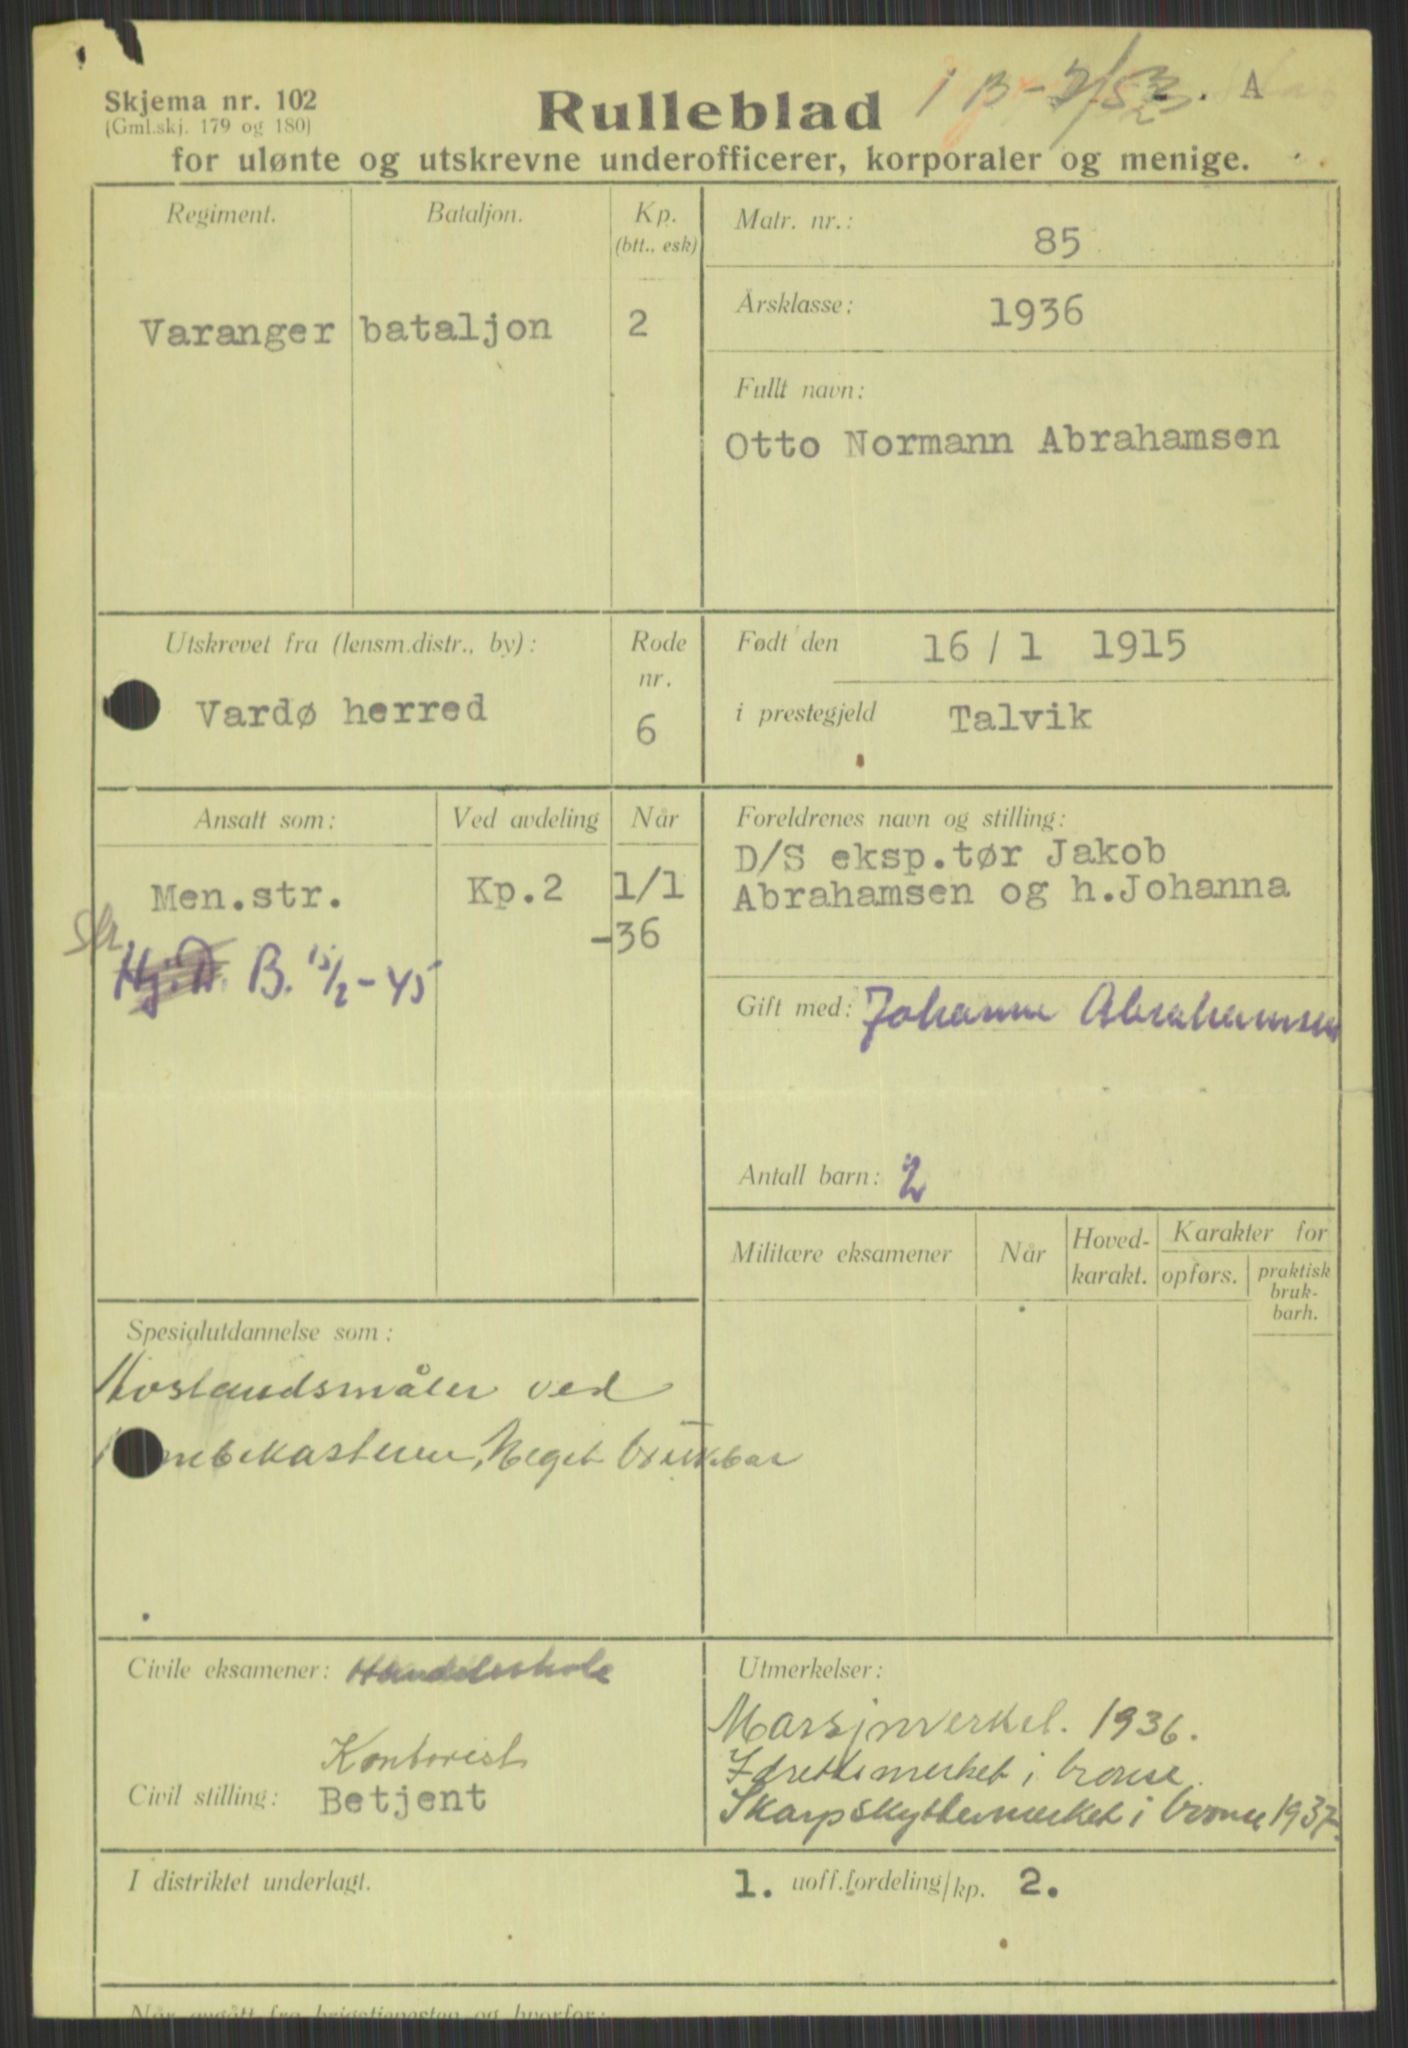 Skjema nr. 102
(Gml.skj. 179 og 180)
Rulleblad
A
for ulønte og utskrevne underofficerer, korporaler og menige.
Regiment.
Bataljon.
Kp.
(btt., esk)
Varanger bataljon
2
Matr. nr.:
85
Årsklasse:
1936
Fullt navn:
Otto Normann Abrahamsen
Utskrevet fra (lensm.distr., by):
Vardø herred
Rode
nr.
6
Født den
16 / 1 1915
i prestegjeld
Talvik
Ansatt som:
Ved avdeling
Når
Men.str.
Kp.2
1/1
-36
B. 15/2-45
Foreldrenes navn og stilling:
D/S eksp.tør Jakob
Abrahamsen og h.Johanna
Gift med: Johanne Abrahamsen
Antall barn: 2
Militære eksamener
Når
Hoved-
karakt.
Karakter for
opførs.
praktisk
bruk-
barh.
Spesialutdannelse som:
Avstandsmåler ved
Meget brukbar
Civile eksamener: Handelsskole
Kontorist
Civil stilling: Betjent
Utmerkelser:
Marsjmerket. 1936.
Idrettsmerket i bronse.
Skarpskyttermerket i bronse 1937.
I distriktet underlagt.
1. uoff.fordeling/kp. 2.
Når avgått fra krigstjenesten og hvorfor: